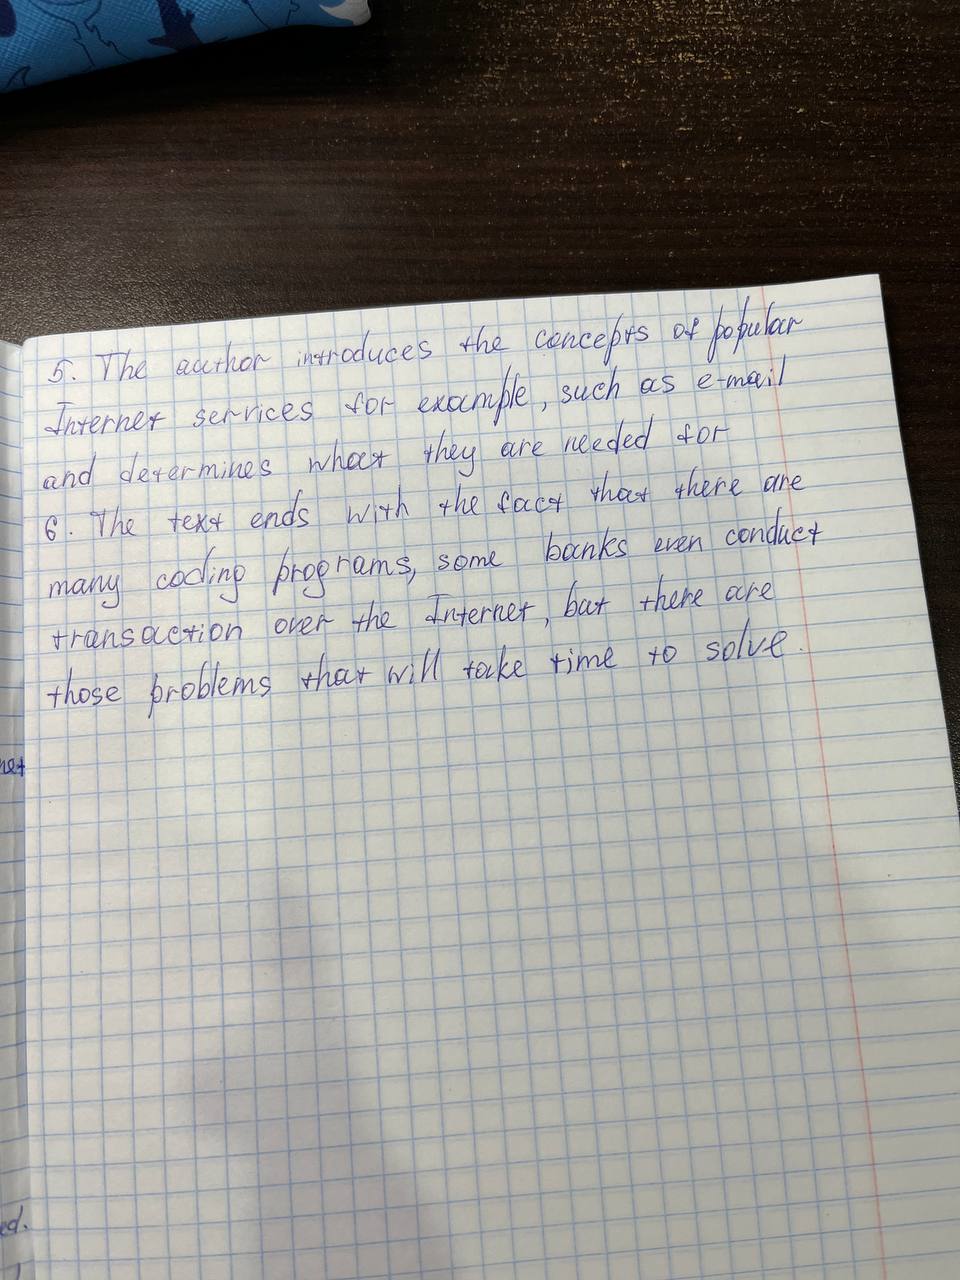 5. The author introduces the concepts of popular
Internet services for example, such as e-mail
and determines what they are needed for
6. The text ends with the fact that there are
many coding programs, some banks even conduct
transaction over the Internet, but there are
those problems that will take time to solve.
net
ed.